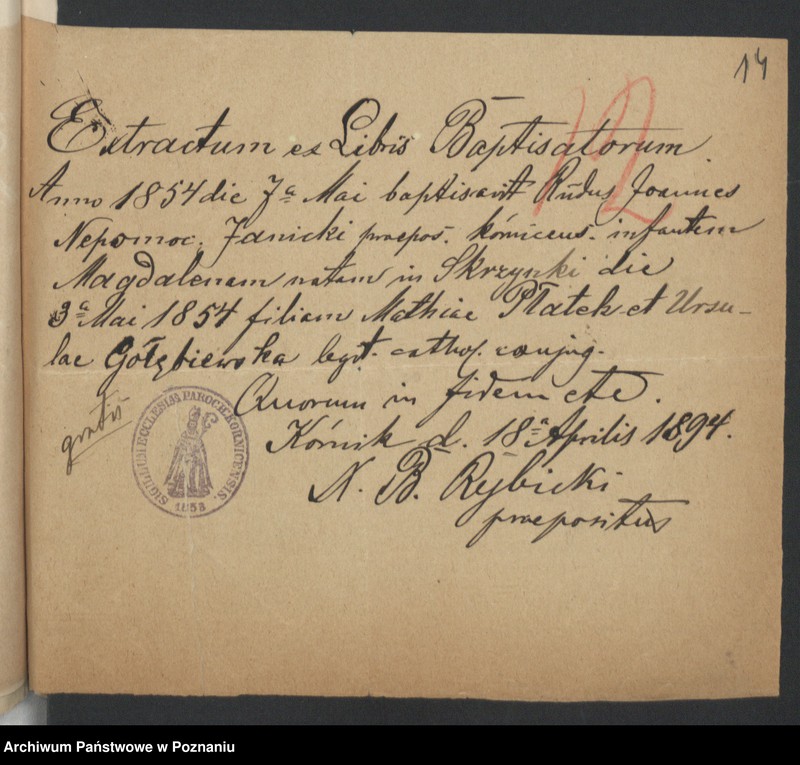 14
12
Extractum ex Libris Baptisatorum.
Anno 1854 die 7ª Mai baptisavit Rndus Joannes
Nepomoc. Janicki praepos. kórnicens. infantem
Magdalenam natam in Skrzynki die
3ª Mai 1854 filiam Mathiae Płatek et Ursu-
lae Gołębiewska legit. cathol. conjug.
Quorum in fidem etc.
gratis
Kórnik d. 18ª Aprilis 1894.
N. B. Rybicki
praepositus
SIGILLUM ECCLESIÆ PAROCH. KORNICENSIS.
1853
Archiwum Państwowe w Poznaniu